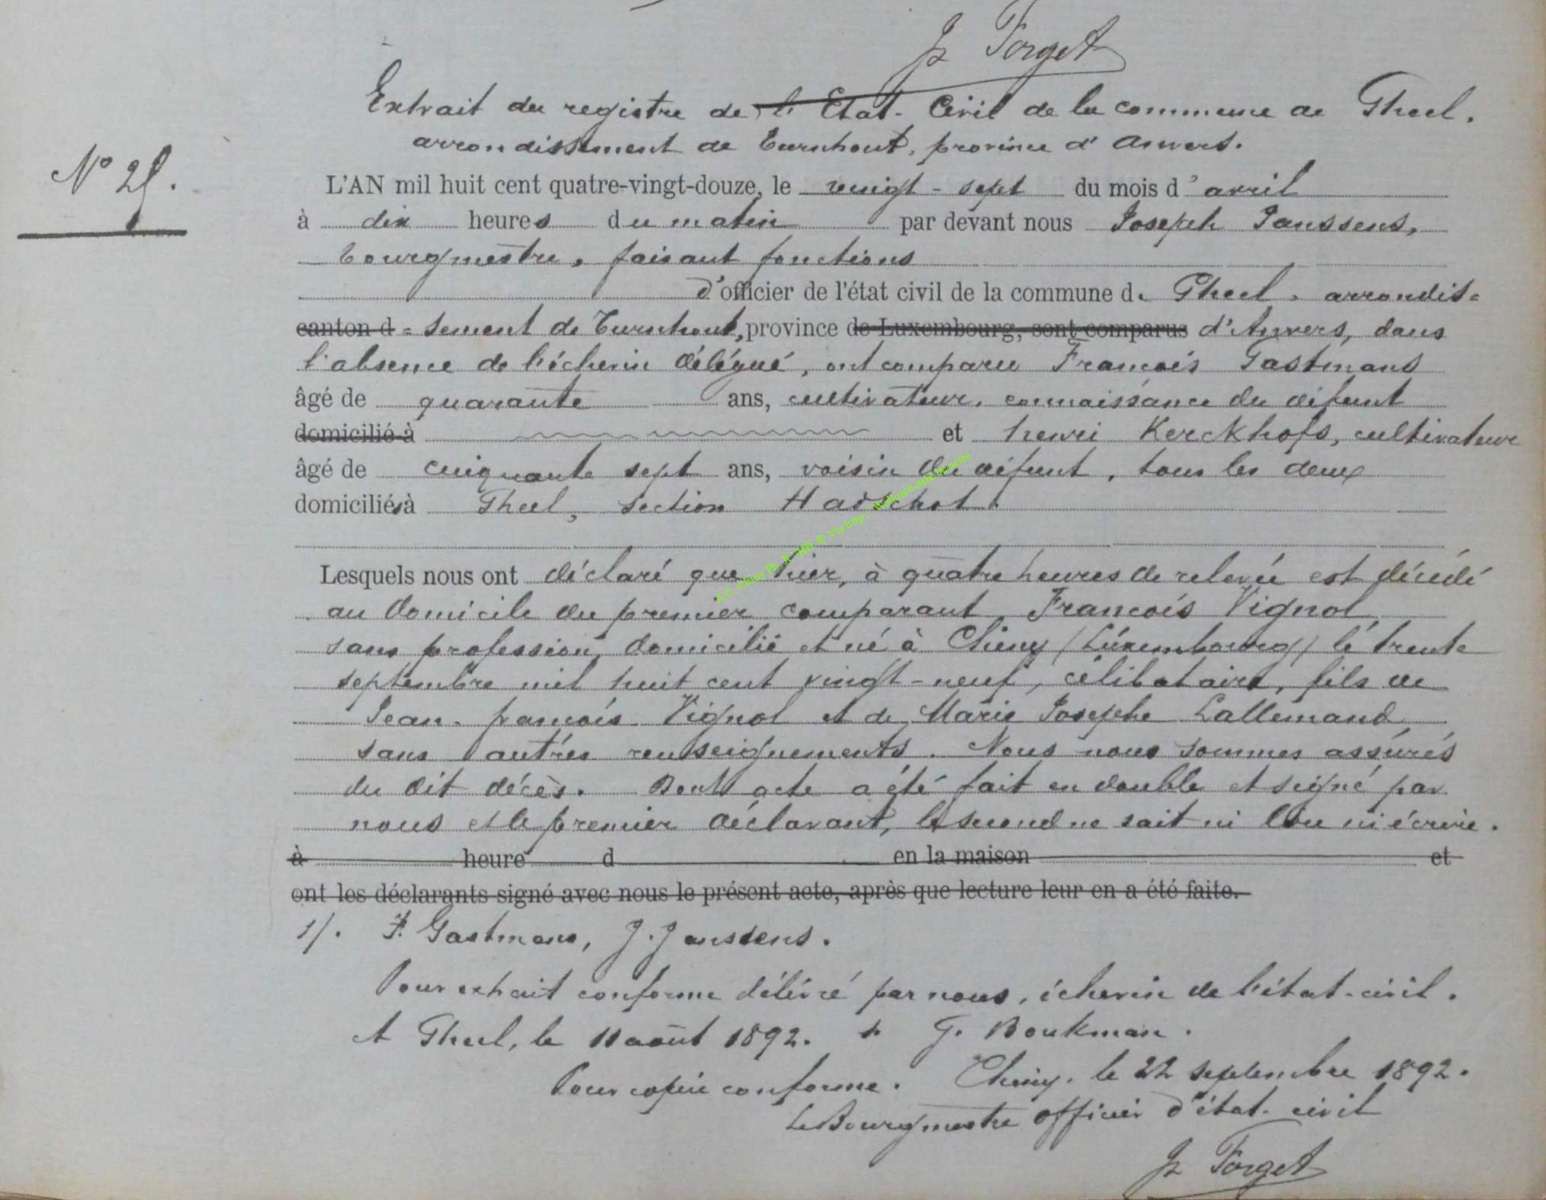 Jz Forget
Extrait du registre de l'Etat-Civil de la commune de Gheel,
arrondissement de Turnhout, province d'Anvers.
N° 25.
L'AN mil huit cent quatre-vingt-douze, le vingt-sept du mois d'avril
à dix heures du matin par devant nous Joseph Janssens,
bourgmestre, faisant fonctions
d'officier de l'état civil de la commune de Gheel, arrondis=
canton d=sement de Turnhout, province de Luxembourg, sont comparus d'Anvers, dans
l'absence de l'échevin délégué, ont comparu François Gastmans
âgé de quarante ans, cultivateur, connaissance du défunt
domicilié à et henri Kerckhofs, cultivateur
âgé de cinquante sept ans, voisin du défunt, tous les deux
domiciliés à Gheel, section Hadschot.
Lesquels nous ont déclaré que hier, à quatre heures de relevée est décédé
au domicile du premier comparant François Vignol,
sans profession, domicilié et né à Chiny (Luxembourg) le trente
septembre mil huit cent vingt-neuf, célibataire, fils de
Jean-françois Vignol et de Marie Josephe Lallemand
sans autres renseignements. Nous nous sommes assurés
du dit décès. Dont acte a été fait en double et signé par
nous et le premier déclarant, le second ne sait ni lire ni écrire.
à heure d en la maison et
ont les déclarants signé avec nous le présent acte, après que lecture leur en a été faite.
s/. F. Gastmans, J. Janssens.
Pour extrait conforme délivré par nous, échevin de l'état-civil.
A Gheel, le 11 août 1892. s. G. Boukman.
Pour copie conforme. Chiny, le 22 septembre 1892.
Le Bourgmestre officier d'état-civil
Jz Forget